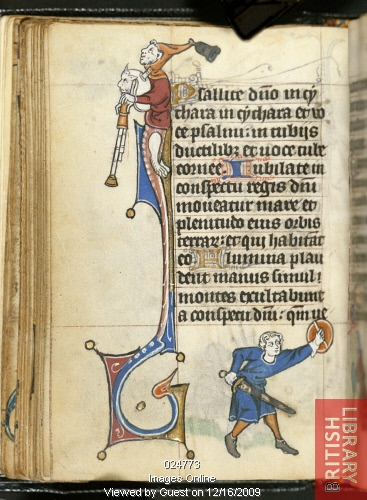 psallite dño in cy
chara in cychara et vo
ce psalmi: in tubijs
ductilibꝫ et uoce tube
cornee Iubilate in
conspectu regis dñi
moueatur mare et
plenitudo eius orbis
terrarꝫ: et qui habitãt
eo flumina plau
dent manus simul:
montes exultabunt
a conspectu dñi: qm̃ ue
024773
Images Online
Viewed by Guest on 12/16/2009
BRITISH
LIBRARY